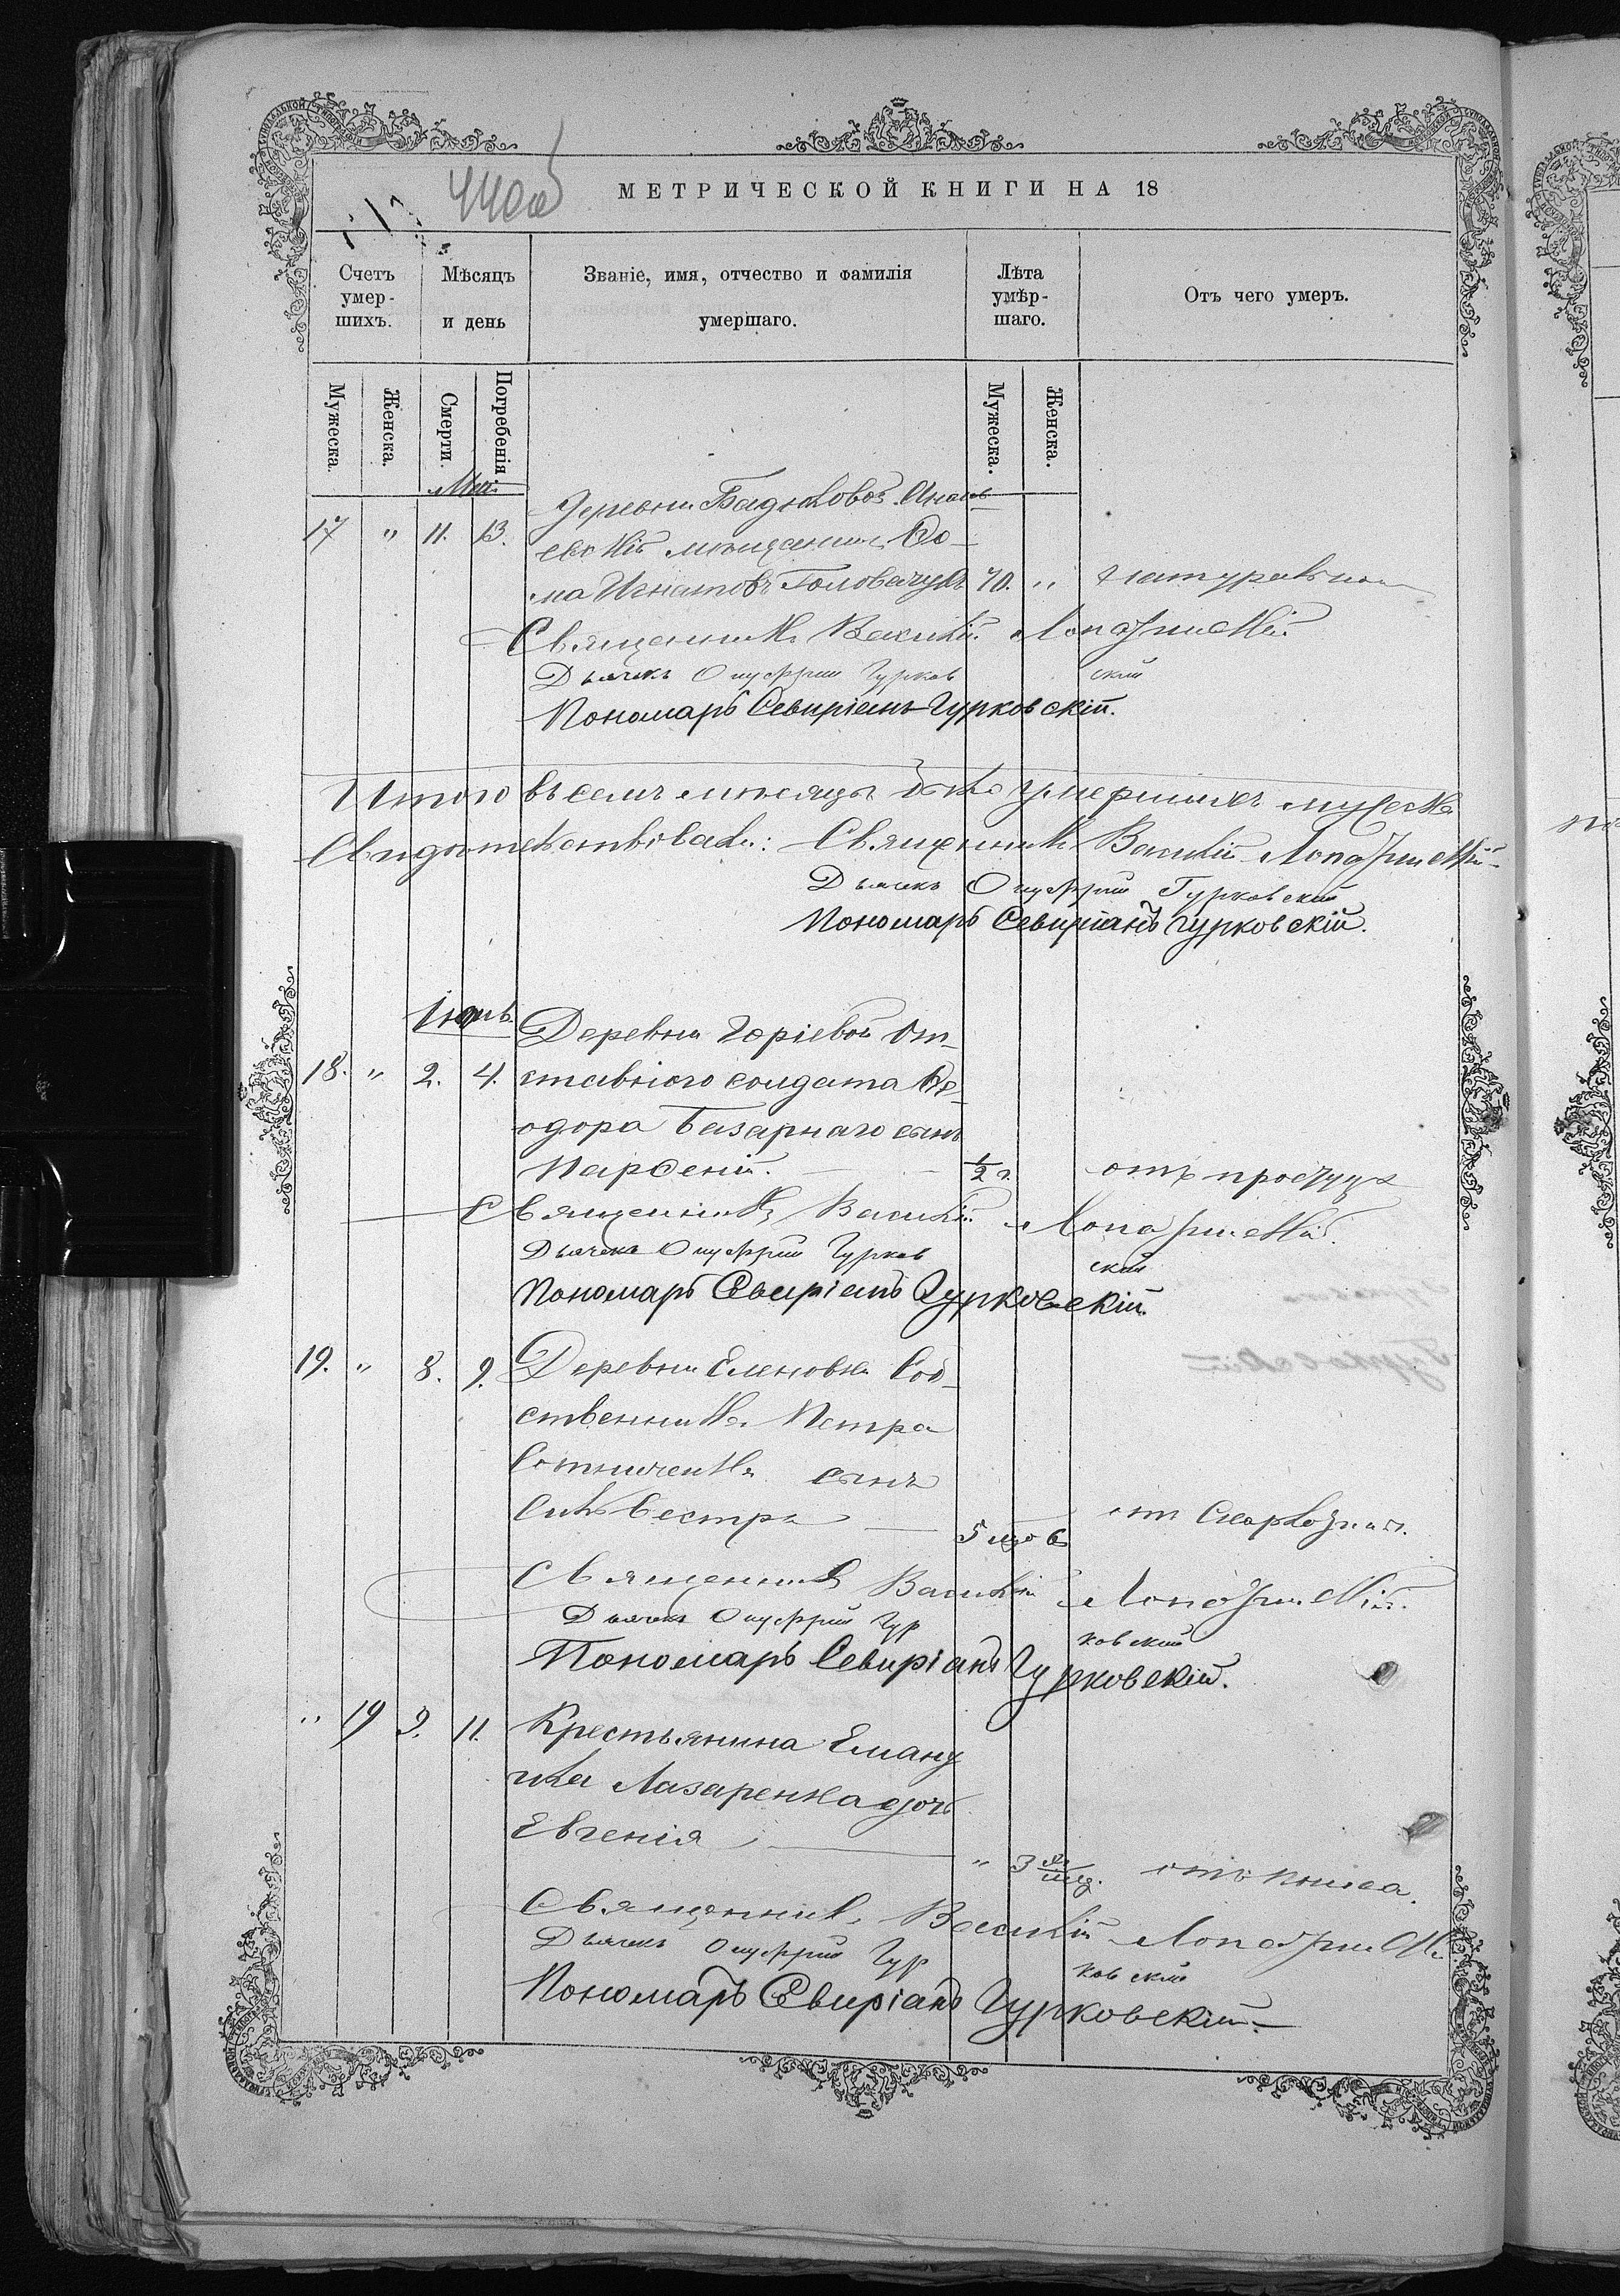 440об
МЕТРИЧЕСКОЙ КНИГИ НА 18
Счетъ умер-шихъ.
Мѣсяцъ и день
Званіе, имя, отчество и фамилія умершаго.
Лѣта умѣр-шаго.
Отъ чего умеръ.
Мужеска. Женска. Смерти. Погребенія Мужеска. Женска.
Май.
Деревни Бадюловой Анань-
17 " 11. 13. евскій мѣщанинъ Ѳо-
ма Игнатовъ Головачукъ 70. " натурально
Священникъ Василій Лопатинскій
Дьячекъ Онуфрій Гурковскій
Пономарь Севиріанъ Гурковскій.
Итого въ семъ мѣсяцѣ было умершихъ мужеска
Свидѣтельствовали: Священникъ Василій Лопатинскій
Дьячекъ Онуфрій Гурковскій
Пономарь Севиріанъ Гурковскій.
Іюнь
Деревни Горіевой От-
18. " 2. 4. ставного солдата Ѳе-
одора Базарнаго сынъ
Парѳеній. ½ г. отъ простуды
Священникъ Василій Лопатинскій.
Дьячекъ Онуфрій Гурковскій
Пономарь Севиріанъ Гурковскій.
19. " 8. 9. Деревни Еленовки Соб-
ственника Петра
Сотниченка сынъ
Сильвестръ 5 мѣс
Священникъ Василій Лопатинскій.
Дьячекъ Онуфрій Гурковскій
Пономарь Севиріанъ Гурковскій.
" 19 9. 11. Крестьянина Еману
ила Лазаренка дочь
Евгенія " 3 отъ
Священникъ Василій Лопатинскій
Дьячекъ Онуфрій Гурковскій
Пономарь Севиріанъ Гурковскій.